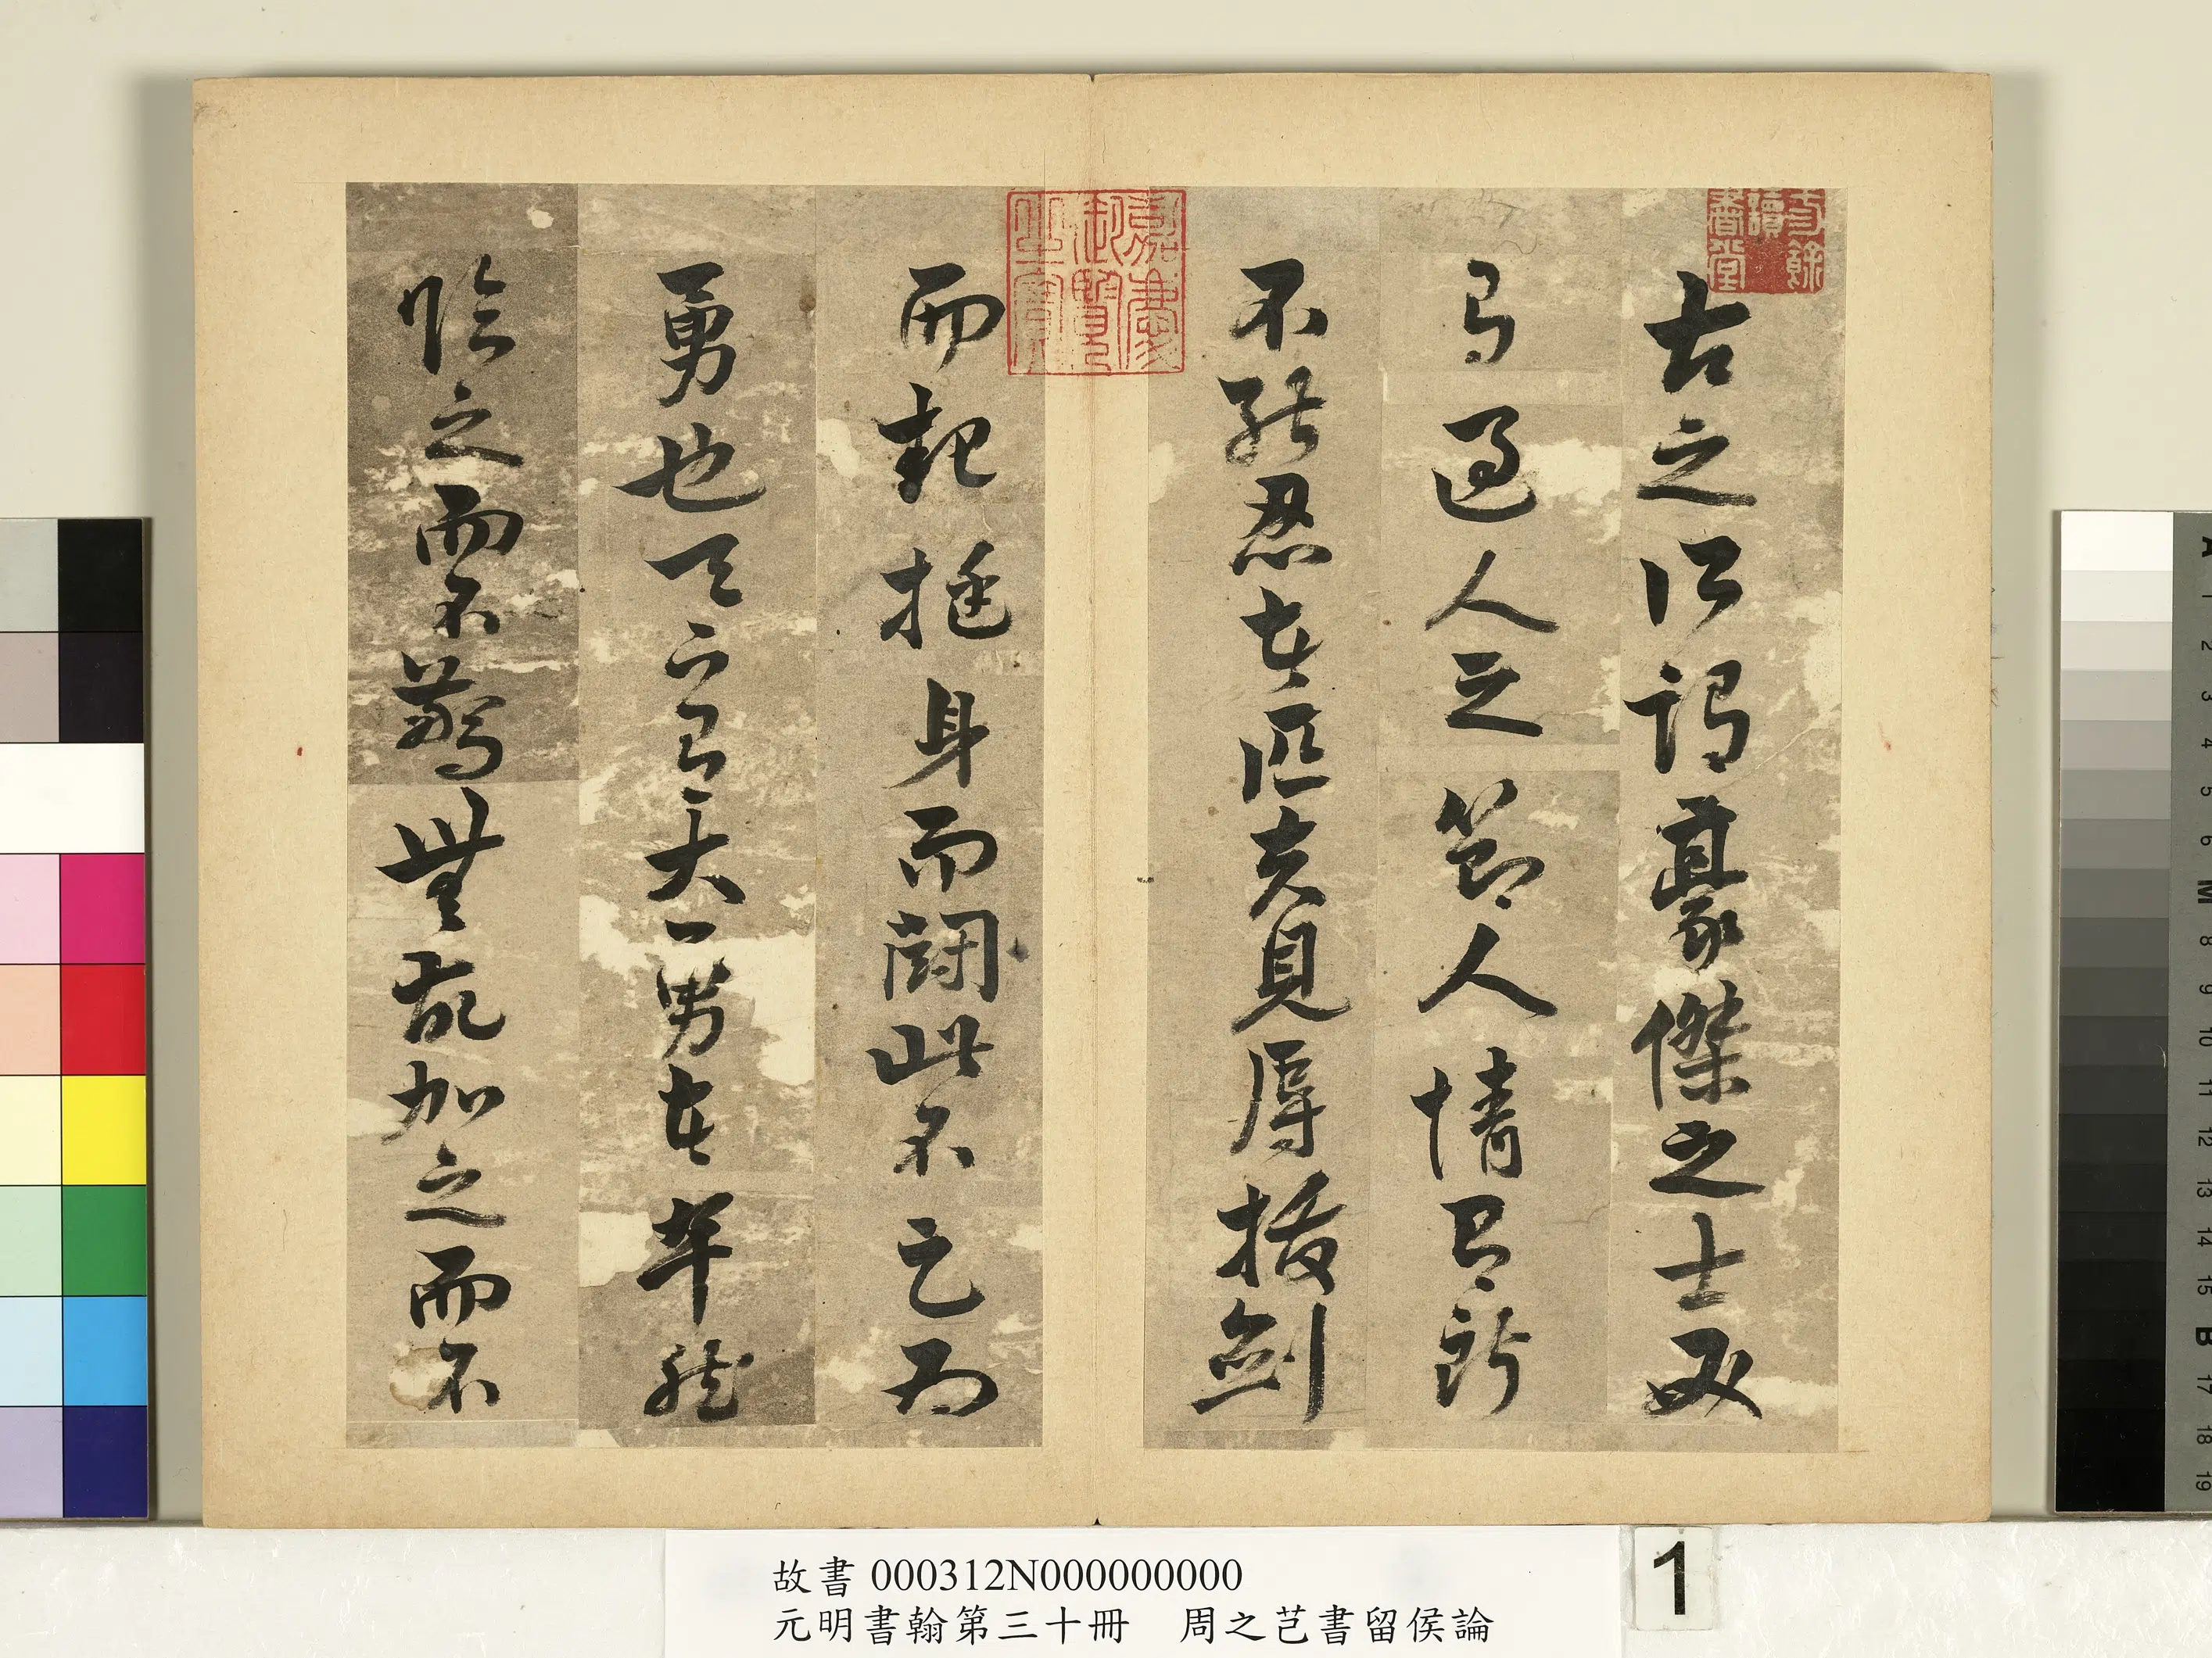 古之所謂豪傑之士必
有過人之節人情有所
不能忍者匹夫見辱拔劍
而起挺身而鬪此不足為
勇也天下有大勇者卒然
臨之而不驚無故加之而不
餘讀書堂
嘉慶御覽之寶
故書 000312N000000000
元明書翰第三十冊　周之芑書留侯論
1
A 1 2 3 4 5 6 M 8 9 10 11 12 13 14 15 B 17 18 19